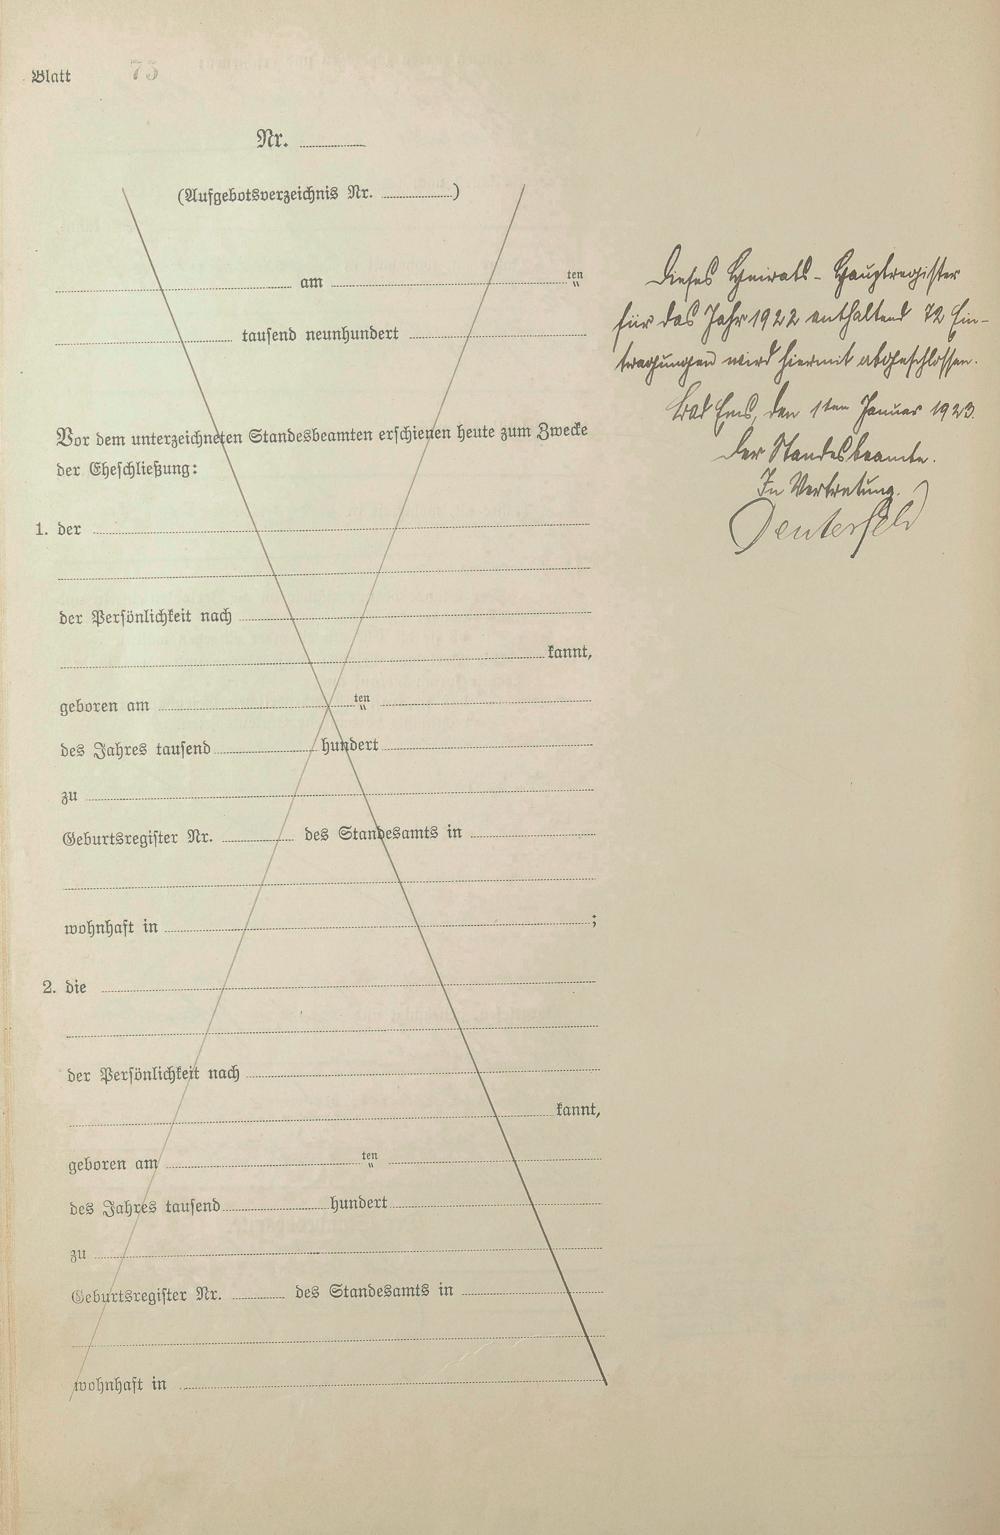 Blatt 73
Nr.
(Aufgebotsverzeichnis Nr. )
am ten
tausend neunhundert
Vor dem unterzeichneten Standesbeamten erschienen heute zum Zwecke
der Eheschließung:
1. der
der Persönlichkeit nach
kannt,
geboren am ten
des Jahres tausend hundert
zu
Geburtsregister Nr. des Standesamts in
wohnhaft in ;
2. die
der Persönlichkeit nach
kannt,
geboren am ten
des Jahres tausend hundert
zu
Geburtsregister Nr. des Standesamts in
wohnhaft in
Dieses Heirats-Hauptregister
für das Jahr 1922 enthaltend 72 Ein-
tragungen wird hiermit abgeschlossen.
Bad Ems, den 1ten Januar 1923.
Der Standesbeamte.
In Vertretung.